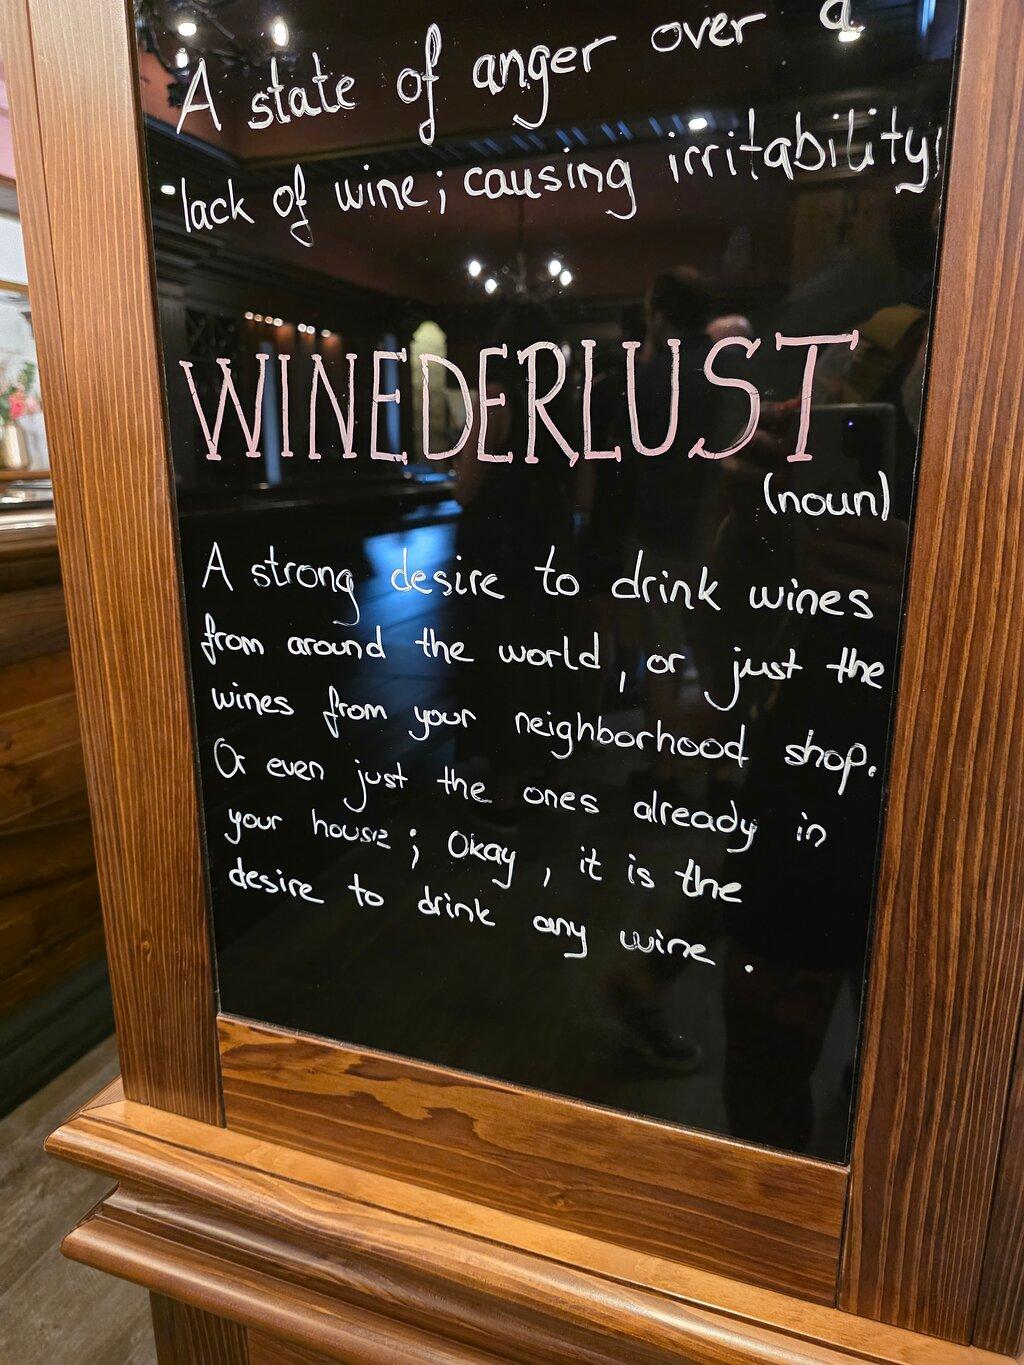 A state of anger over a
lack of wine; causing irritability
WINEDERLUST
(noun)
A strong desire to drink wines
from around the world, or just the
wines from your neighborhood shop.
Or even just the ones already in
your house; Okay, it is the
desire to drink any wine.